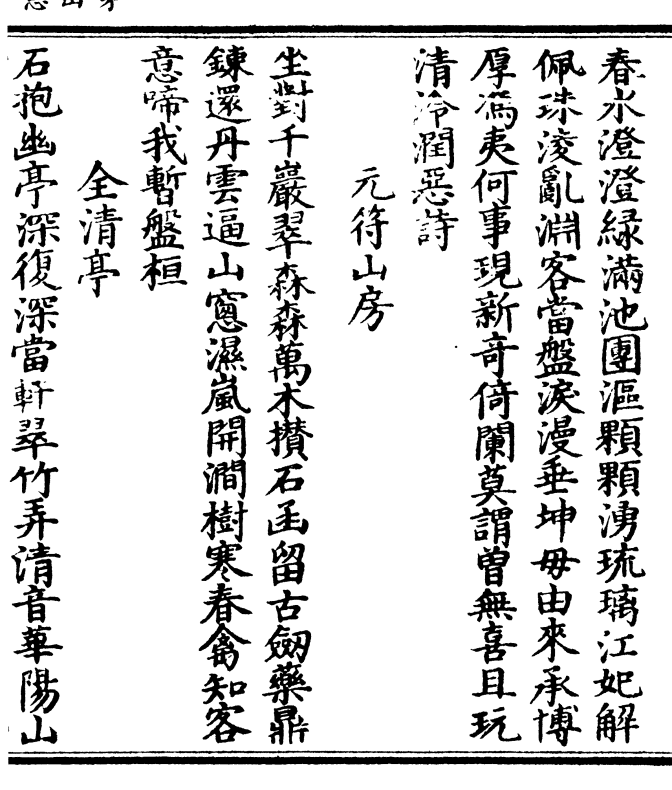 春水澄澄緑滿池團漚顆顆湧琉璃江妃解
佩珠淩亂淵客當盤淚漫垂坤毋由來承博
厚馮夷何事現新奇倚闌莫謂曽無喜且玩
清泠潤惡詩
元符山房
坐對千巖翠森森萬木攅石函留古劔藥鼎
鍊還丹雲逼山窻濕嵐開澗樹寒春禽知客
意啼我暫盤桓
全清亭
石抱幽亭深復深當軒翠竹弄清音華陽山